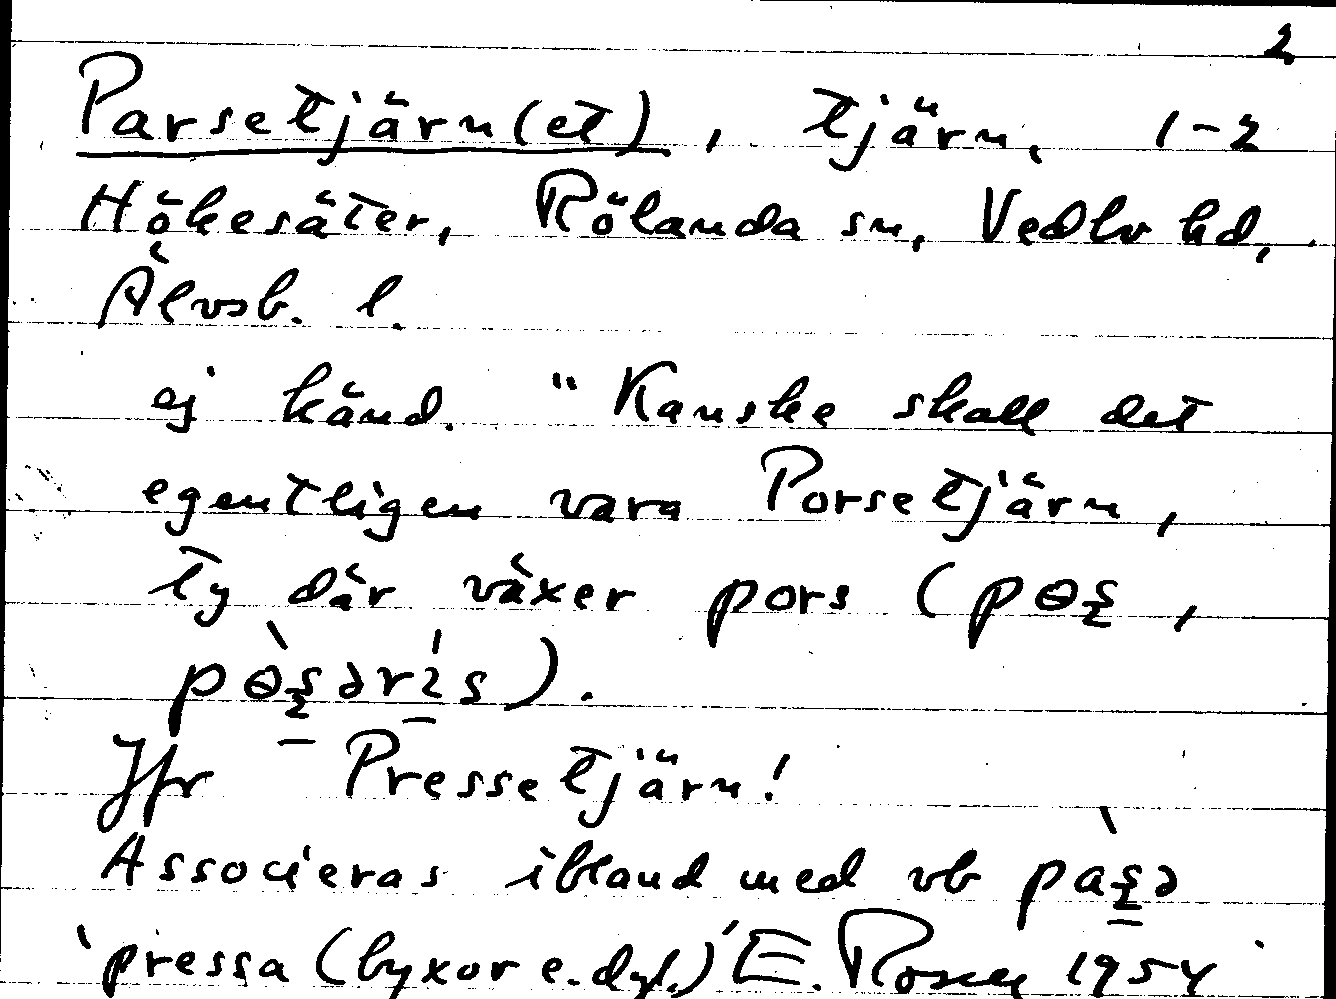 2
Parsetjärn(et), tjärn, 1-2
Hökesäter, Rölanda sn, Vedbo hd,
Älvsb. l.
ej känd. "Kanske skall det
egentligen vara Porsetjärn,
ty där växer pors (pɵʂ,
pɵ̀ʂərís).
Jfr Pressetjärn!
Associeras ibland med vb pàʂə
'pressa (byxor e.dyl.)' E. Rosen 1954